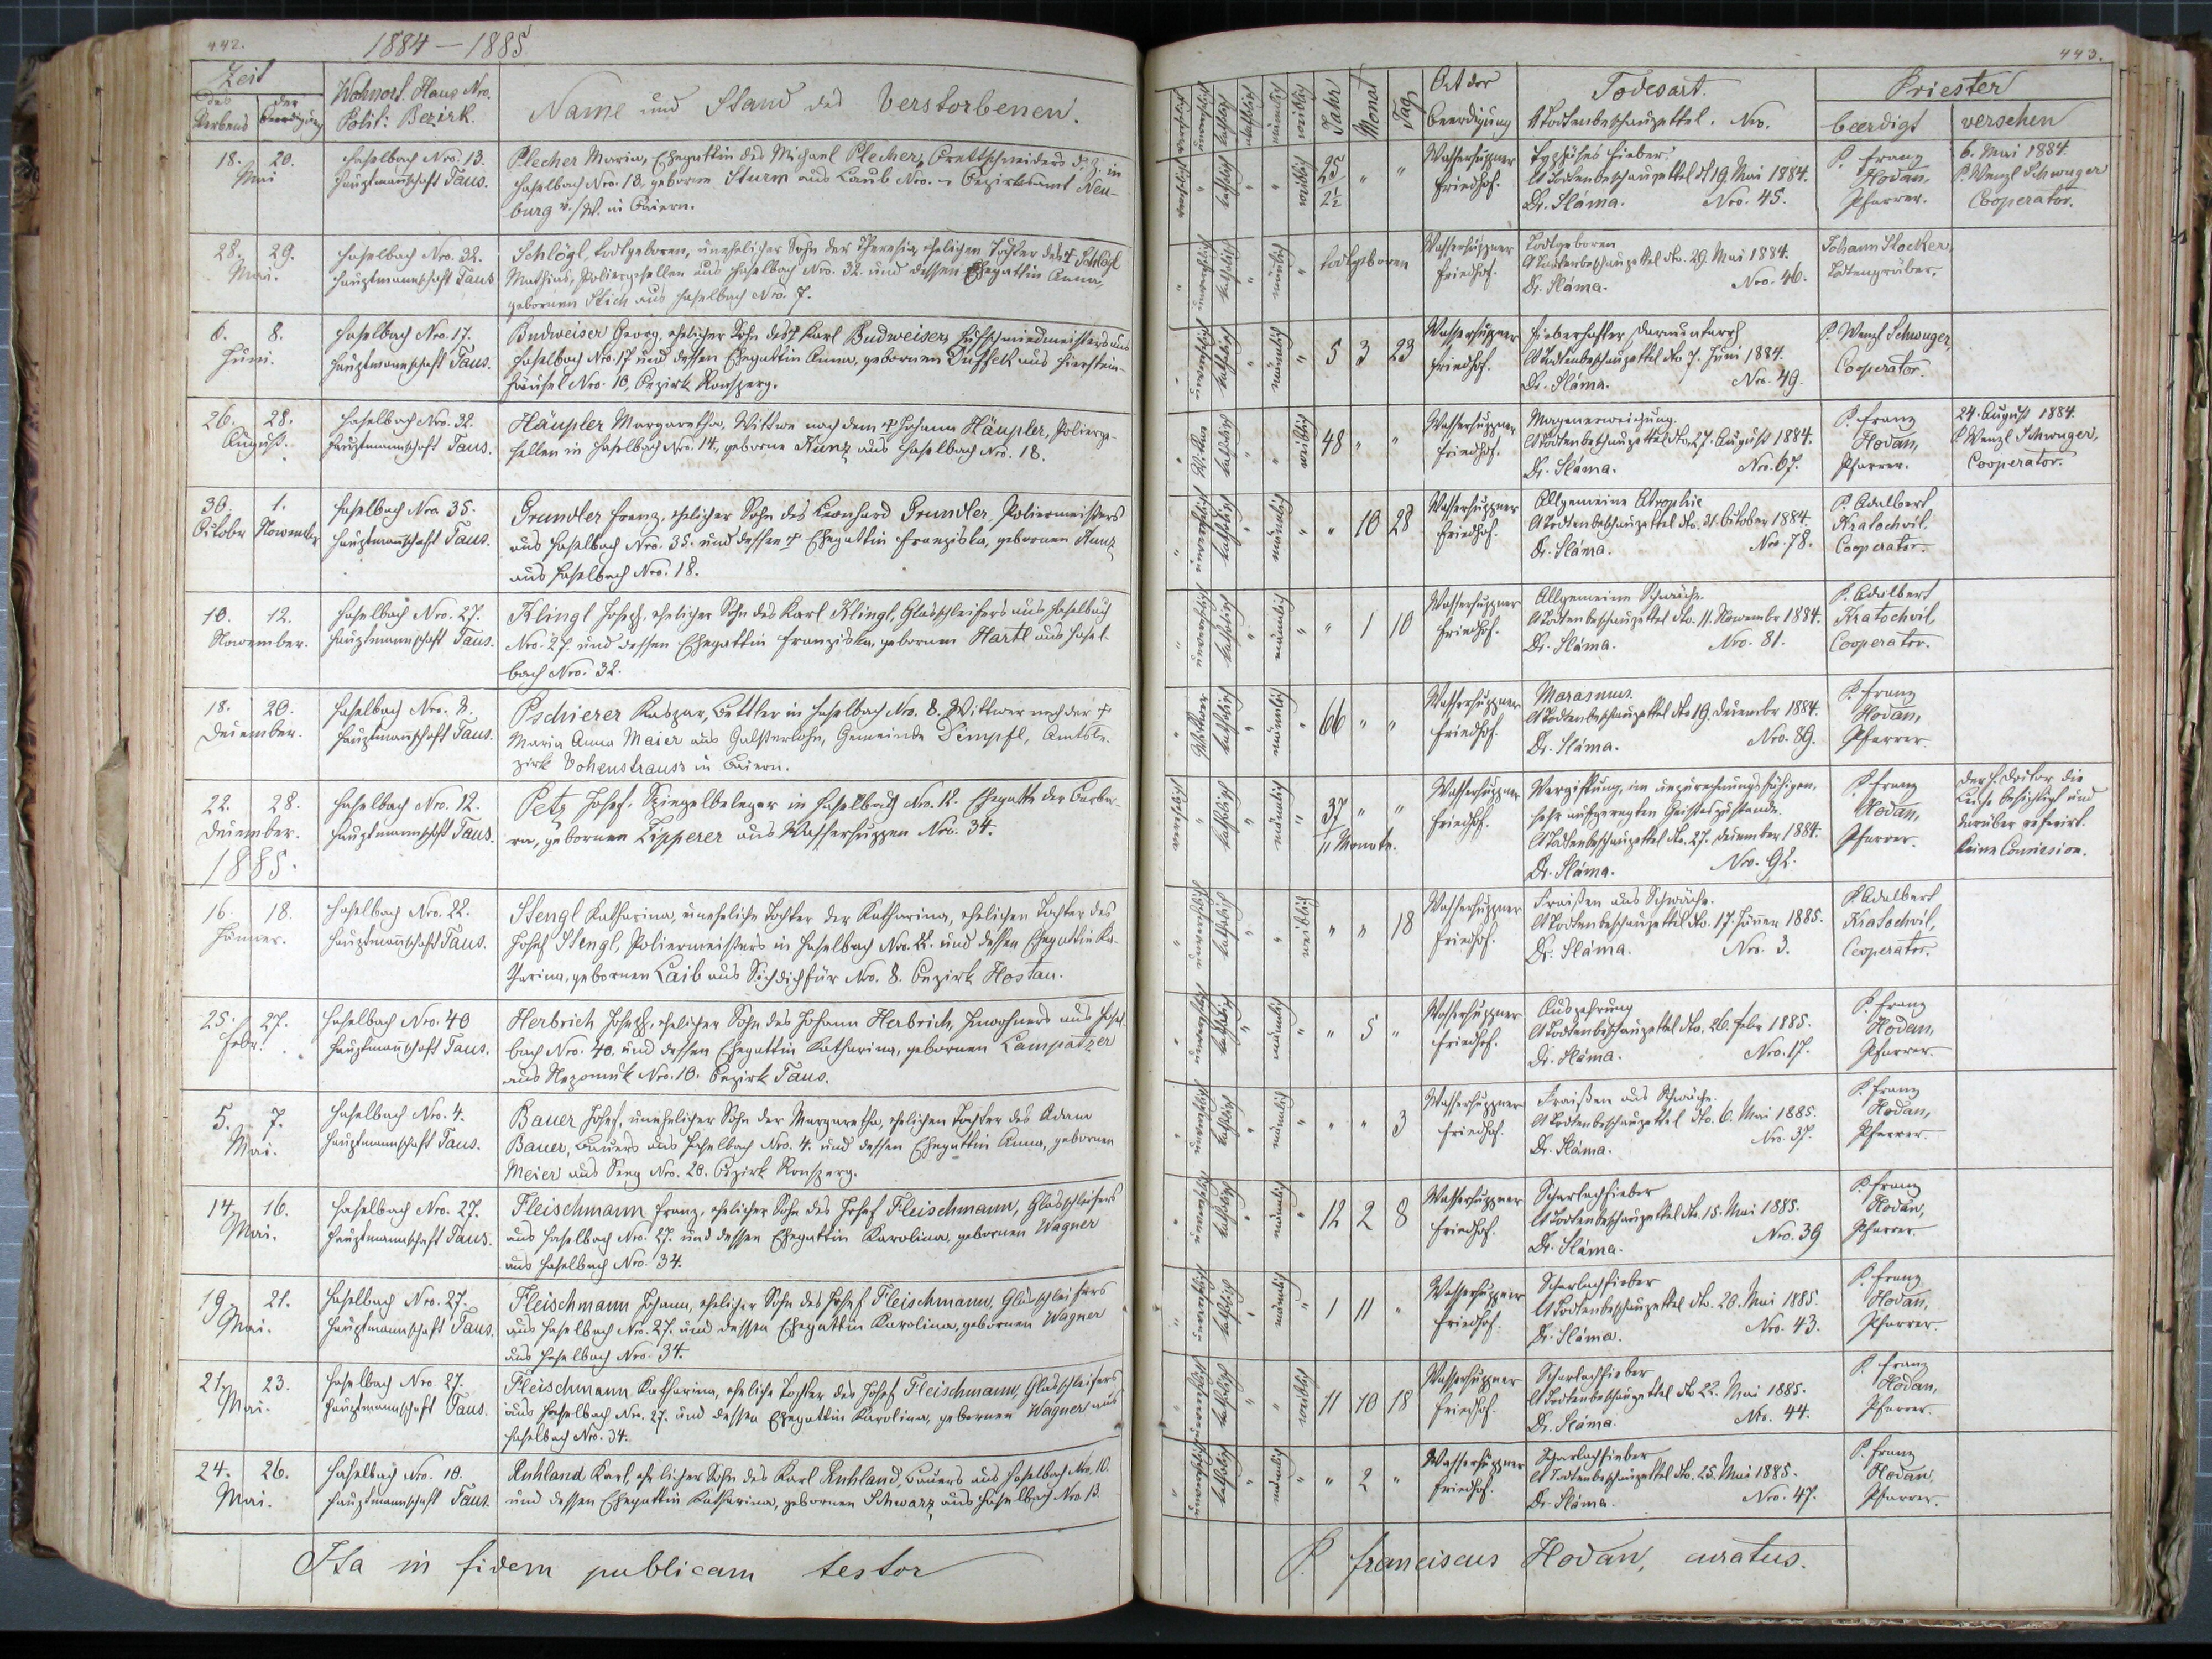 442.
1884 – 1885
443.
Zeit
des Sterbens
der Beerdigung
Wohnort. Haus Nro.
Polit: Bezirk.
Name und Stand des Verstorbenen.
Jahr
Monat
Tag
Ort der
Beerdigung
Todesart.
lt Todtenbeschauzettel. Nro.
Priester
beerdigt
versehen
18. 20.
Mai
Haselbach Nro. 13.
Hauptmannschaft Taus.
Plecher Maria, Ehegattin des Michael Plecher, Brettschneiders d. Z. in
Haselbach Nro. 13, geborne Sturm aus Laub Nro. – Bezirksamt Neu-
burg v./W. in Baiern.
verheirathet
katholisch
weiblich
25 " "
2½
Wassersuppner
Friedhof.
Typhöses Fieber.
lt Todtenbeschauzettel dt 19. Mai 1884.
Dr. Sláma. Nro. 45.
P. Franz
Hodan,
Pfarrer.
6. Mai 1884.
P. Wenzl Schwager
Cooperator.
28. 29.
Mai.
Haselbach Nro. 32.
Hauptmannschaft Taus
Schlögl, todtgeboren, unehelicher Sohn der Theresia, ehelichen Tochter des † Schlögl
Mathias, Poliergesellen aus Haselbach Nro. 32. und dessen Ehegattin Anna,
gebornen Stich aus Haselbach Nro. 7.
katholisch
männlich
todtgeboren
Wassersuppner
Friedhof.
Todtgeboren
lt Todtenbeschauzettel dto. 29. Mai 1884.
Dr. Sláma. Nro. 46.
Johann Stocker,
Todtengräber.
6. 8.
Juni.
Haselbach Nro. 17.
Hauptmannschaft Taus.
Budweiser Georg, ehelicher Sohn des † Karl Budweiser, Hufschmiedmeisters aus
Haselbach Nro. 17 und dessen Ehegattin Anna, gebornen Duffek aus Hirschstein-
häusel Nro. 10, Bezirk Ronsperg.
katholisch
männlich
5 3 23
Wassersuppner
Friedhof.
Fieberhafter Darmcatarrh
lt Todtenbeschauzettel dto 7. Juni 1884.
Dr. Sláma. Nro. 49.
P. Wenzl Schwager,
Cooperator.
26. 28.
August.
Haselbach Nro. 32.
Hauptmannschaft Taus.
Häupler Margaretha, Wittwe nach dem † Johann Häupler, Polierge-
sellen in Haselbach Nro. 14., geborne Kunz aus Haselbach Nro. 18.
Wittwe
katholisch
weiblich
48 " "
Wassersuppner
Friedhof.
Magenerweichung.
lt Todtenbeschauzettel dto. 27. August 1884.
Dr. Sláma. Nro. 67.
P. Franz
Hodan,
Pfarrer.
24. August 1884.
P. Wenzl Schwager,
Cooperator.
30. 1.
October November
Haselbach Nro. 35.
Hauptmannschaft Taus.
Grundler Franz, ehelicher Sohn des Leonhard Grundler, Poliermeisters
aus Haselbach Nro. 35. und dessen † Ehegattin Franziska, gebornen Kunz
aus Haselbach Nro. 18.
katholisch
männlich
" 10 28
Wassersuppner
Friedhof.
Allgemeine Atrophie
lt Todtenbeschauzettel dto. 31. October 1884.
Dr. Sláma. Nro. 78.
P. Adalbert
Kratochvil.
Cooperator.
10. 12.
November.
Haselbach Nro. 27.
Hauptmannschaft Taus.
Klingl Joseph, ehelicher Sohn des Karl Klingl, Glasschleifers aus Haselbach
Nro. 27. und dessen Ehegattin Franziska, gebornen Hartl aus Hasel-
bach Nro. 32.
katholisch
männlich
" 1 10
Wassersuppner
Friedhof.
Allgemeine Schwäche.
lt Todtenbeschauzettel dto. 11. November 1884.
Dr. Sláma. Nro. 81.
P. Adalbert
Kratochvil,
Cooperator.
18. 20.
December.
Haselbach Nro. 8.
Hauptmannschaft Taus.
Pschierer Kaspar, Bettler in Haselbach Nro. 8. Wittwer nach der †
Maria Anna Maier aus Galsterlohe, Gemeinde Dimpfl, Amtsbe-
zirk Vohenstrauss in Baiern.
Wittwer
katholisch
männlich
66 " "
Wassersuppner
Friedhof.
Marasmus.
lt Todtenbeschauzettel dto 19. December 1884.
Dr. Sláma. Nro. 89.
P. Franz
Hodan,
Pfarrer.
22. 28.
December.
Haselbach Nro. 12.
Hauptmannschaft Taus.
Petz Josef, Spiegelbeleger in Haselbach Nro. 12. Ehegatte der Barba-
ra, gebornen Zipperer aus Wassersuppen Nro. 34.
verheirathet
katholisch
männlich
37 " "
11 Monate.
Wassersuppner
Friedhof.
Vergiftung, im unzurechnungsfähigen,
sehr aufgeregten Geisteszustande.
lt Todtenbeschauzettel dto. 27. December 1884.
Dr. Sláma. Nro. 92.
P. Franz
Hodan,
Pfarrer.
Der H. Doctor die
Leiche besichtigt und
darüber referirt.
Keine Comission.
1885.
16. 18.
Jänner.
Haselbach Nro. 22.
Hauptmannschaft Taus.
Stengl Katharina, uneheliche Tochter der Katharina, ehelichen Tochter des
Josef Stengl, Poliermeisters in Haselbach Nro. 22. und dessen Ehegattin Ka-
tharina, gebornen Laib aus Sichdichfür Nro. 8. Bezirk Hostau.
katholisch
weiblich
" " 18
Wassersuppner
Friedhof.
Fraißen aus Schwäche.
lt Todtenbeschauzettel dto. 17. Jänner 1885.
Dr. Sláma. Nro. 3.
P. Adalbert
Kratochvil,
Cooperator.
25. 27.
Febr.
Haselbach Nro. 40
Hauptmannschaft Taus.
Herbrich Joseph, ehelicher Sohn des Johann Herbrich, Inwohners aus Hasel-
bach Nro. 40. und dessen Ehegattin Katharina, gebornen Lampatzer
aus Nepomuk Nro. 10. Bezirk Taus.
katholisch
männlich
" 5 "
Wassersuppner
Friedhof.
Auszehrung
lt Todtenbeschauzettel dto. 26. Febr 1885.
Dr. Sláma. Nro. 17.
P. Franz
Hodan,
Pfarrer.
5. 7.
Mai.
Haselbach Nro. 4.
Hauptmannschaft Taus.
Bauer Josef, unehelicher Sohn der Margaretha, ehelichen Tochter des Adam
Bauer, Bauers aus Haselbach Nro. 4. und dessen Ehegattin Anna, gebornen
Meier aus Seeg Nro. 20. Bezirk Ronsperg.
katholisch
männlich
" " 3
Wassersuppner
Friedhof.
Fraißen aus Schwäche.
lt Todtenbeschauzettel dto. 6. Mai 1885.
Dr. Sláma. Nro. 37.
P. Franz
Hodan,
Pfarrer.
14. 16.
Mai.
Haselbach Nro. 27.
Hauptmannschaft Taus.
Fleischmann Franz, ehelicher Sohn des Josef Fleischmann, Glasschleifers
aus Haselbach Nro. 27. und dessen Ehegattin Karolina, gebornen Wagner
aus Haselbach Nro. 34.
katholisch
männlich
12 2 8
Wassersuppner
Friedhof.
Scharlachfieber
lt Todtenbeschauzettel dto. 15. Mai 1885.
Dr. Sláma. Nro. 39
P. Franz
Hodan,
Pfarrer.
19. 21.
Mai.
Haselbach Nro. 27.
Hauptmannschaft Taus.
Fleischmann Johann, ehelicher Sohn des Josef Fleischmann, Glasschleifers
aus Haselbach Nro. 27. und dessen Ehegattin Karolina, gebornen Wagner
aus Haselbach Nro. 34.
katholisch
männlich
1 11 "
Wassersuppner
Friedhof.
Scharlachfieber
lt Todtenbeschauzettel dto. 20. Mai 1885.
Dr. Sláma. Nro. 43.
P. Franz
Hodan,
Pfarrer.
21. 23.
Mai.
Haselbach Nro. 27.
Hauptmannschaft Taus.
Fleischmann Katharina, eheliche Tochter des Josef Fleischmann, Glasschleifers
aus Haselbach Nro. 27. und dessen Ehegattin Karolina, gebornen Wagner aus
Haselbach Nro. 34.
katholisch
weiblich
11 10 18
Wassersuppner
Friedhof.
Scharlachfieber
lt Todtenbeschauzettel dto 22. Mai 1885.
Dr. Sláma. Nro. 44.
P. Franz
Hodan,
Pfarrer.
24. 26.
Mai.
Haselbach Nro. 10.
Hauptmannschaft Taus.
Ruhland Karl, ehelicher Sohn des Karl Ruhland, Bauers aus Haselbach Nro. 10.
und dessen Ehegattin Katharina, gebornen Schwarz aus Haselbach Nro. 13.
katholisch
männlich
" 2 "
Wassersuppner
Friedhof.
Scharlachfieber
lt Todtenbeschauzettel dto. 25. Mai 1885.
Dr. Sláma. Nro. 47.
P. Franz
Hodan,
Pfarrer.
Ita in fidem publicam testor
P. Franciscus Hodan, curatus.